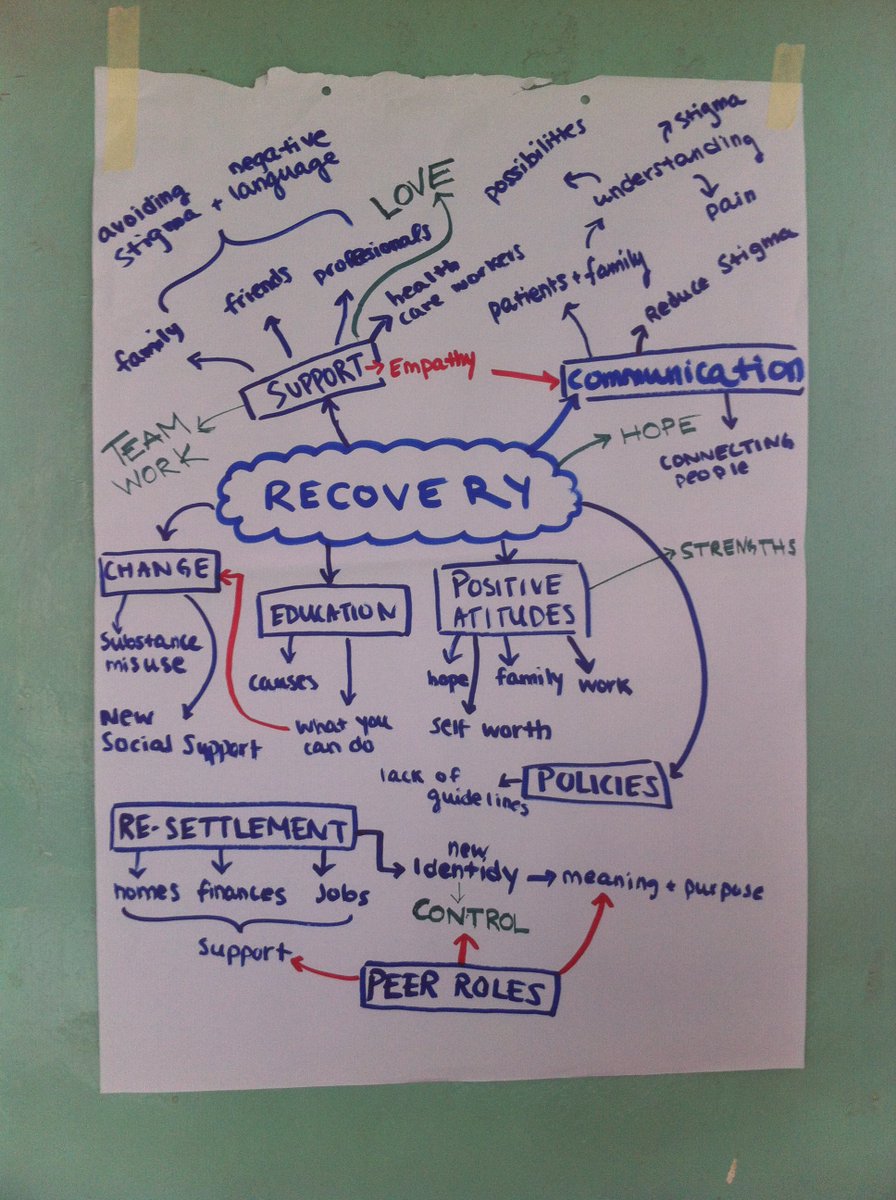 avoiding
stigma + negative
language
LOVE
family
friends
professionals
health
care workers
possibilities
stigma
understanding
pain
patients + family
Reduce stigma
SUPPORT
Empathy
communication
TEAM
WORK
HOPE
CONNECTING
people
RECOVERY
STRENGTHS
CHANGE
EDUCATION
POSITIVE
ATITUDES
Substance
misuse
New
Social Support
causes
what you
can do
hope
family
work
self worth
lack of
guidelines
POLICIES
RE-SETTLEMENT
homes
finances
Jobs
support
new
Identidy
meaning + purpose
CONTROL
PEER ROLES